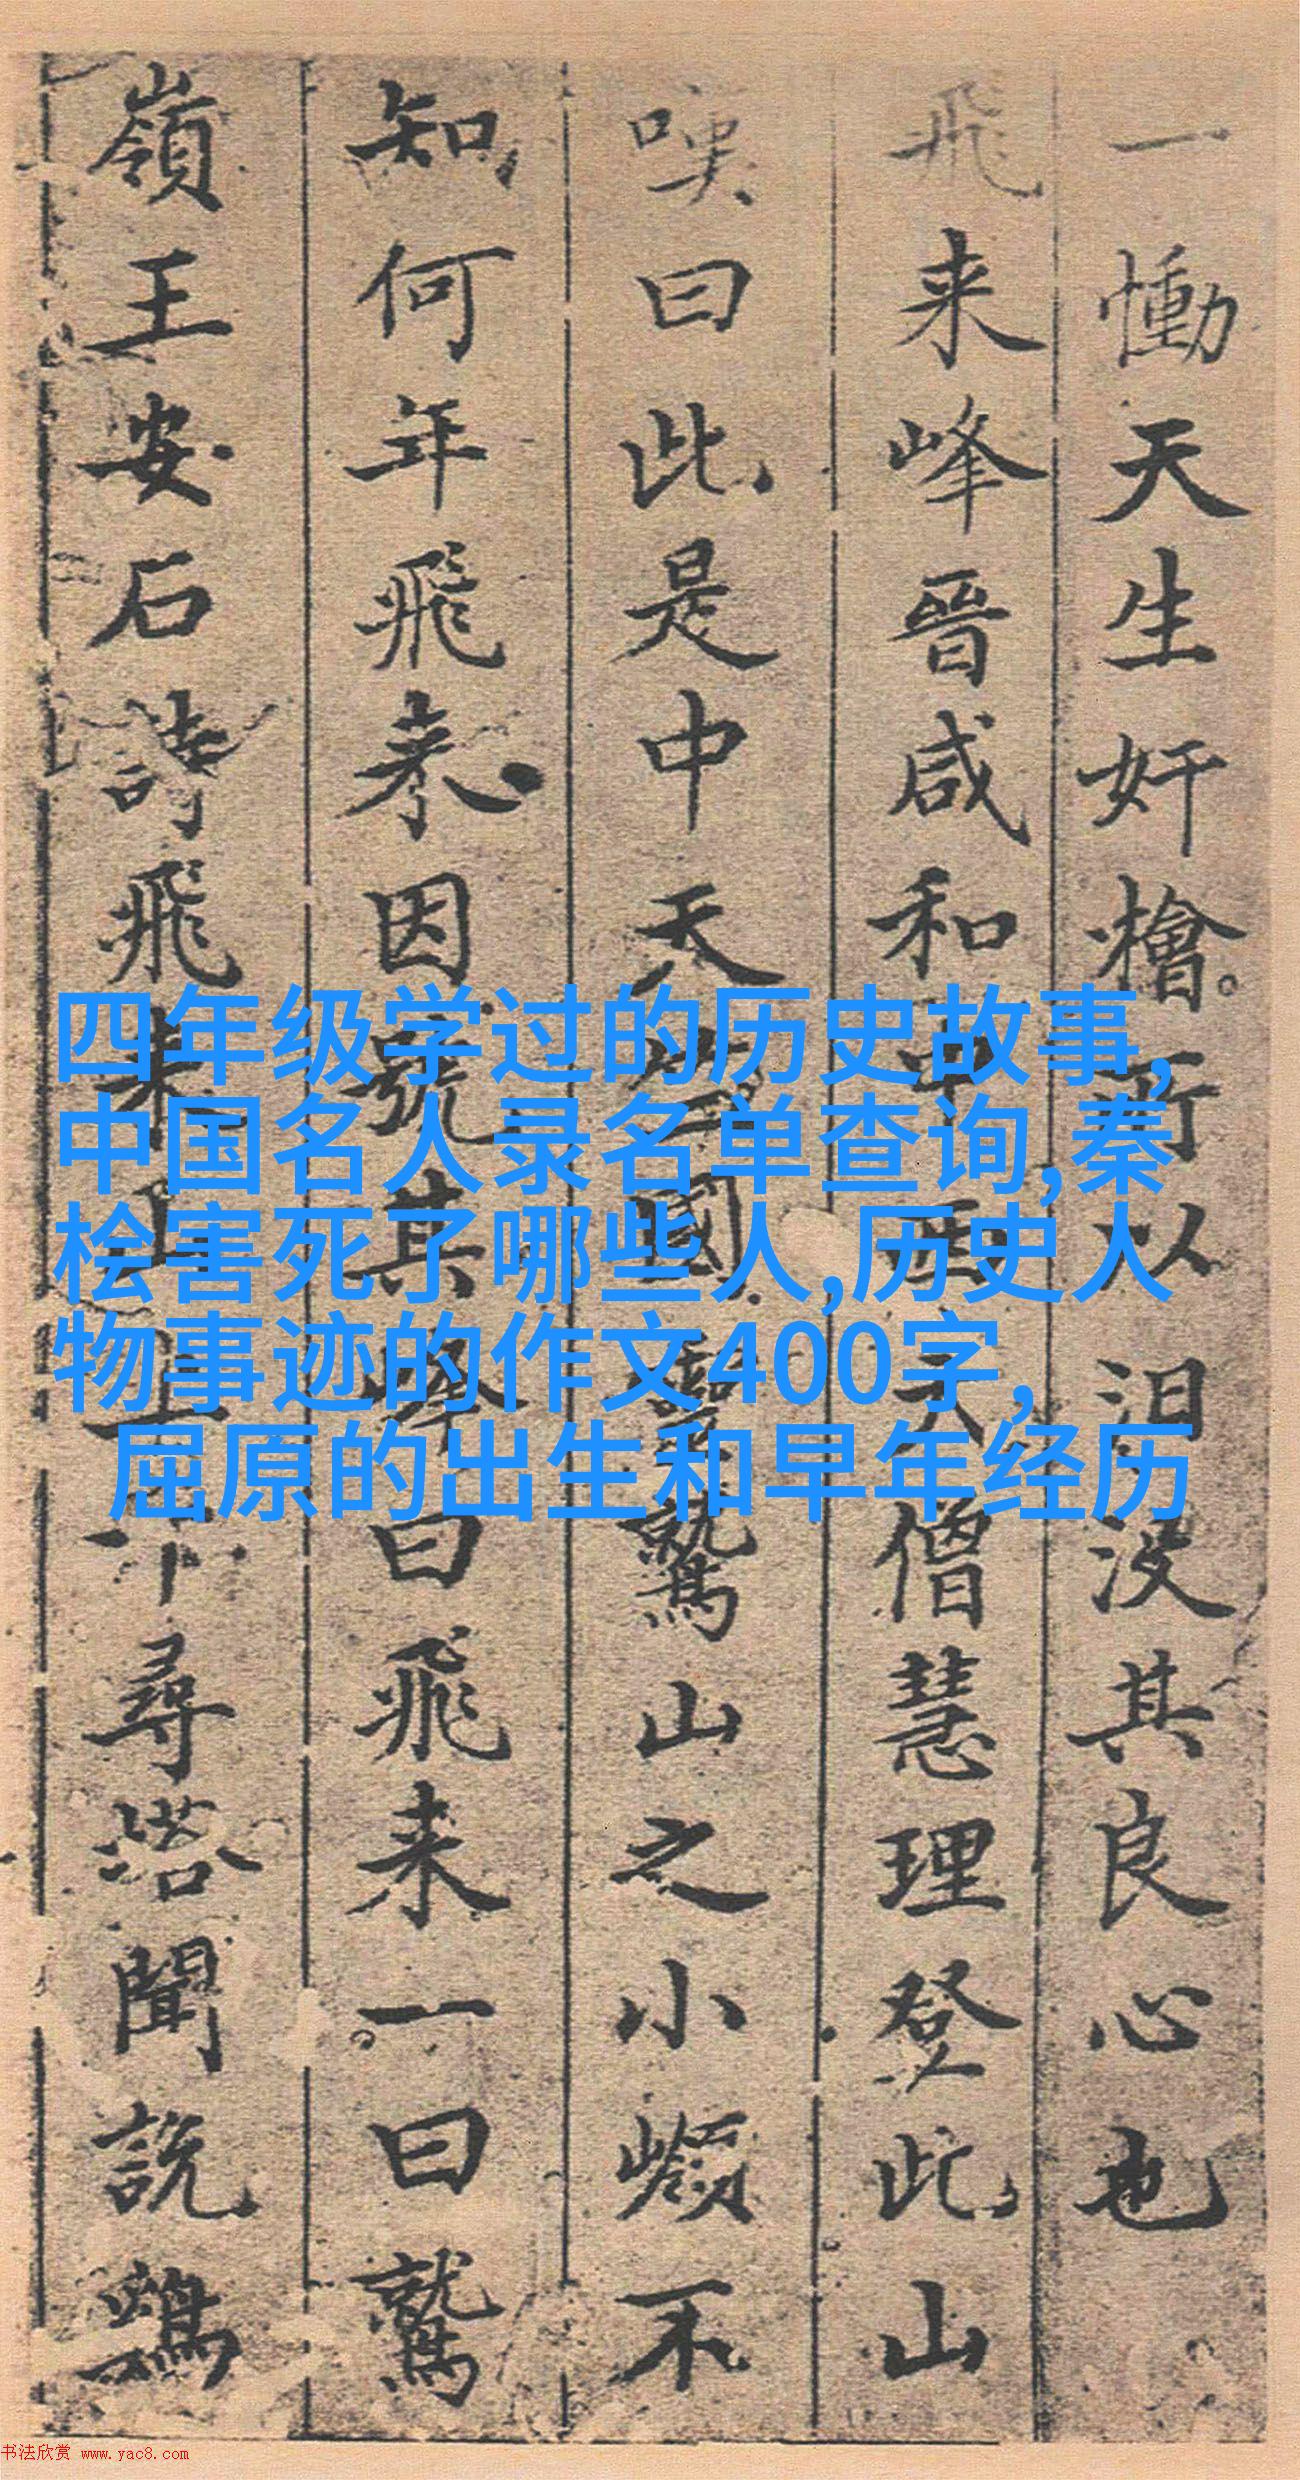 一慟天生奸檜所以汨没其良心也
飛来峰晉咸和中西天僧慧理登此山
嘆曰此是中天竺國靈鷲山之小嶺不
知何年飛来因號其峰曰飛来一曰鷲
嶺王安石詩飛来山上千尋塔聞説鷄
四年级学过的历史故事,
中国名人录名单查询,秦
桧害死了哪些人,历史人
物事迹的作文400字,
屈原的出生和早年经历
书法欣赏 www.yac8.com